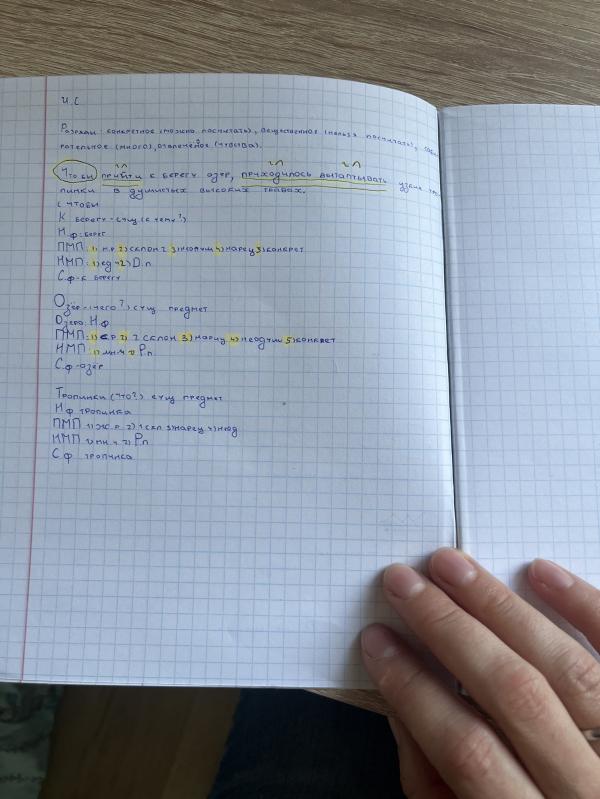 И.С
Разряды: конкретное (можно посчитать), вещественное (нельзя посчитать), соби
рательное (много), отвлечёное (чувства).
Чтобы прийти к берегу озёр, приходилось вытаптывать узкие тро
пинки в душистых высоких травах.
с чтобы
К берегу-сущ (к чему?)
Н.ф: берег
ПМП: 1) м.р 2) склон 2 3) неодуш 4) нариц 5) конкрет
НМП: 1) ед.ч 2) D.п
С.ф-к берегу
Озёр-(чего?) сущ предмет
Озеро Н.ф
ПМП: 1) с.р 2) 2 склон 3) нариц 4) неодуш 5) конкрет
НМП: 1) мн.ч 2) Р.п
С.ф-озёр
Тропинки (что?) сущ предмет
Н.ф тропинка
ПМП 1) ж.р 2) 1 скл 3) нариц 4) неод
НМП 1) мн.ч 2) Р.п
С.ф